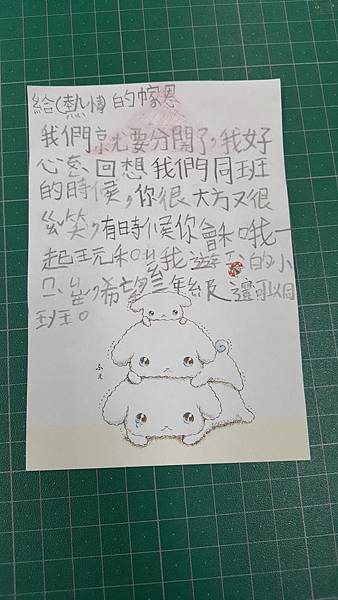 給(熱情)的幏恩
我們京尤要分開了,我好
心急回想我們同班
的時候,你很大方又很
幽笑,有時候你會和哦一
起玩和出我送 的小
只出,希望三年級還可以同
班。
ふぇ